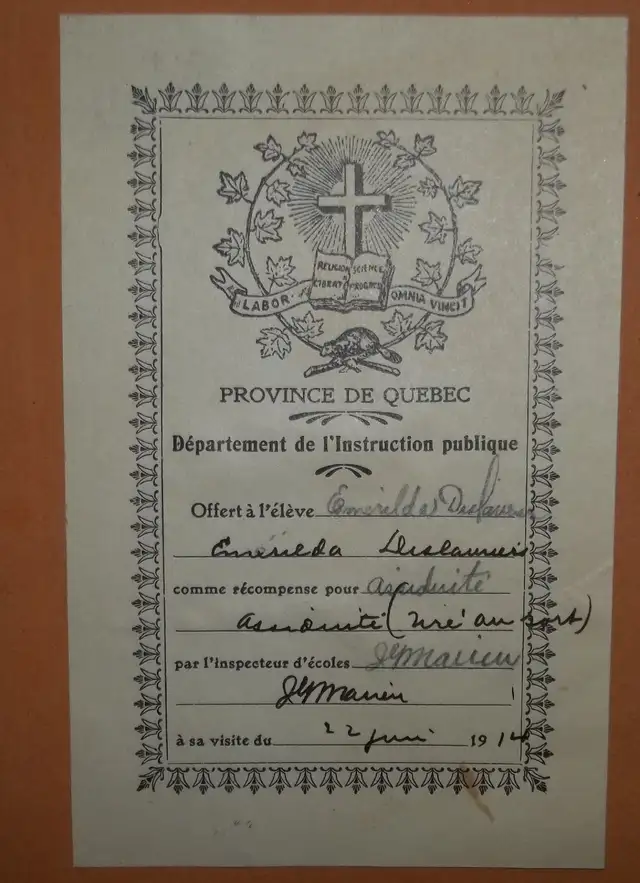 RELIGION SCIENCE
LIBERTÉ PROGRÈS
LABOR OMNIA VINCIT
PROVINCE DE QUEBEC
Département de l'Instruction publique
Offert à l'élève Emérilda Deslauriers
Emérilda Deslauriers
comme récompense pour assiduité
assiduité (tiré au sort)
par l'inspecteur d'écoles
à sa visite du 22 juin 1914